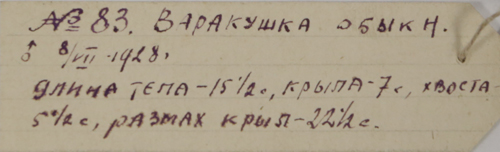 № 83. ВАРАКУШКА ОБЫКН.
♂ 8/VII 1928.
ДЛИНА ТЕЛА-15½ с, КРЫЛА-7 с, ХВОСТА-
5½ с, РАЗМАХ КРЫЛ-22½ с.